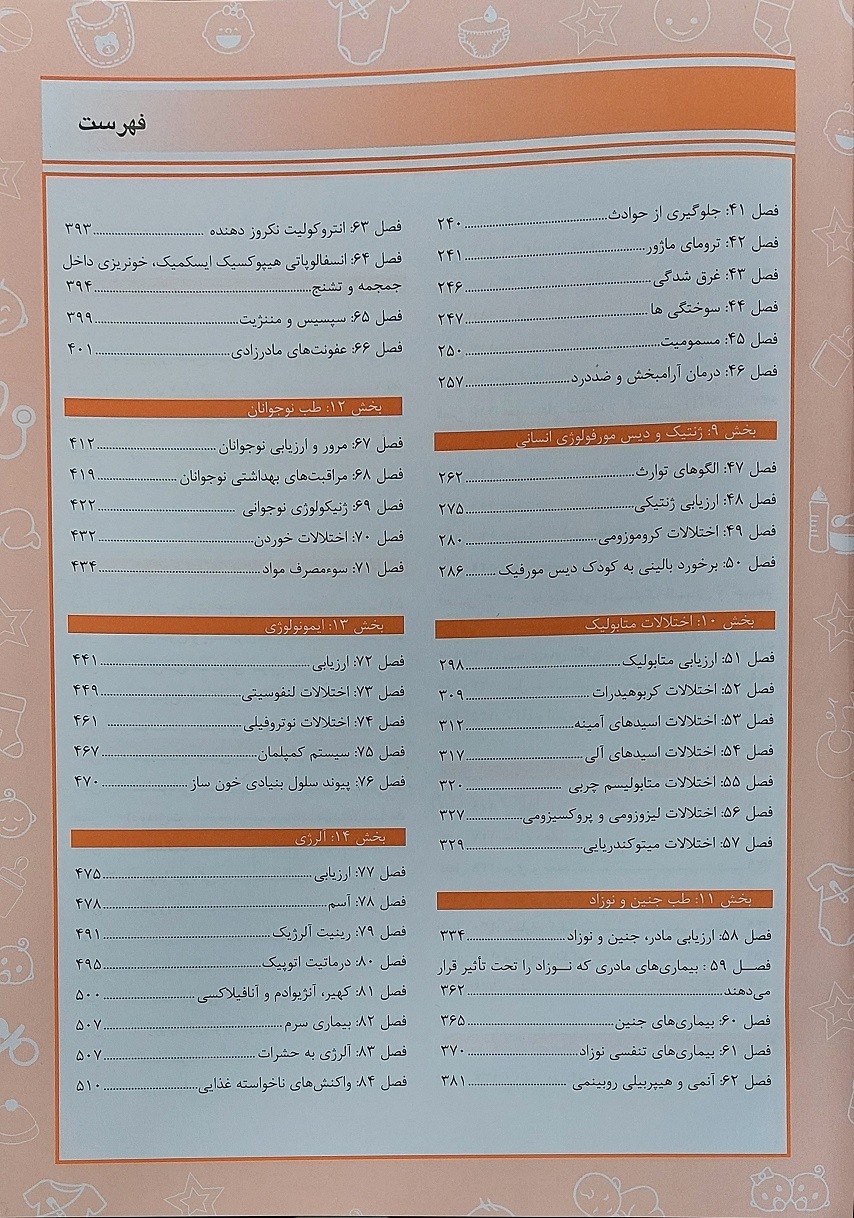 فهرست
فصل ۴۱: جلوگیری از حوادث ........ ۲۴۰
فصل ۴۲: ترومای ماژور ........ ۲۴۱
فصل ۴۳: غرق شدگی ........ ۲۴۶
فصل ۴۴: سوختگی ها ........ ۲۴۷
فصل ۴۵: مسمومیت ........ ۲۵۰
فصل ۴۶: درمان آرامبخش و ضدّدرد ........ ۲۵۷
بخش ۹: ژنتیک و دیس مورفولوژی انسانی
فصل ۴۷: الگوهای توارث ........ ۲۶۲
فصل ۴۸: ارزیابی ژنتیکی ........ ۲۷۵
فصل ۴۹: اختلالات کروموزومی ........ ۲۸۰
فصل ۵۰: برخورد بالینی به کودک دیس مورفیک ........ ۲۸۶
بخش ۱۰: اختلالات متابولیک
فصل ۵۱: ارزیابی متابولیک ........ ۲۹۸
فصل ۵۲: اختلالات کربوهیدرات ........ ۳۰۹
فصل ۵۳: اختلالات اسیدهای آمینه ........ ۳۱۲
فصل ۵۴: اختلالات اسیدهای آلی ........ ۳۱۷
فصل ۵۵: اختلالات متابولیسم چربی ........ ۳۲۰
فصل ۵۶: اختلالات لیزوزومی و پروکسیزومی ........ ۳۲۷
فصل ۵۷: اختلالات میتوکندریایی ........ ۳۲۹
بخش ۱۱: طب جنین و نوزاد
فصل ۵۸: ارزیابی مادر، جنین و نوزاد ........ ۳۳۴
فصــل ۵۹ : بیماری‌های مادری که نــوزاد را تحت تأثیر قرار
می‌دهند ........ ۳۶۲
فصل ۶۰: بیماری‌های جنین ........ ۳۶۵
فصل ۶۱: بیماری‌های تنفسی نوزاد ........ ۳۷۰
فصل ۶۲: آنمی و هیپربیلی روبینمی ........ ۳۸۱
فصل ۶۳: انتروکولیت نکروز دهنده ........ ۳۹۳
فصل ۶۴: انسفالوپاتی هیپوکسیک ایسکمیک، خونریزی داخل
جمجمه و تشنج ........ ۳۹۴
فصل ۶۵: سپسیس و مننژیت ........ ۳۹۹
فصل ۶۶: عفونت‌های مادرزادی ........ ۴۰۱
بخش ۱۲: طب نوجوانان
فصل ۶۷: مرور و ارزیابی نوجوانان ........ ۴۱۲
فصل ۶۸: مراقبت‌های بهداشتی نوجوانان ........ ۴۱۹
فصل ۶۹: ژنیکولوژی نوجوانی ........ ۴۲۲
فصل ۷۰: اختلالات خوردن ........ ۴۳۲
فصل ۷۱: سوءمصرف مواد ........ ۴۳۴
بخش ۱۳: ایمونولوژی
فصل ۷۲: ارزیابی ........ ۴۴۱
فصل ۷۳: اختلالات لنفوسیتی ........ ۴۴۹
فصل ۷۴: اختلالات نوتروفیلی ........ ۴۶۱
فصل ۷۵: سیستم کمپلمان ........ ۴۶۷
فصل ۷۶: پیوند سلول بنیادی خون ساز ........ ۴۷۰
بخش ۱۴: آلرژی
فصل ۷۷: ارزیابی ........ ۴۷۵
فصل ۷۸: آسم ........ ۴۷۸
فصل ۷۹: رینیت آلرژیک ........ ۴۹۱
فصل ۸۰: درماتیت اتوپیک ........ ۴۹۵
فصل ۸۱: کهیر، آنژیوادم و آنافیلاکسی ........ ۵۰۰
فصل ۸۲: بیماری سرم ........ ۵۰۷
فصل ۸۳: آلرژی به حشرات ........ ۵۰۷
فصل ۸۴: واکنش‌های ناخواسته غذایی ........ ۵۱۰